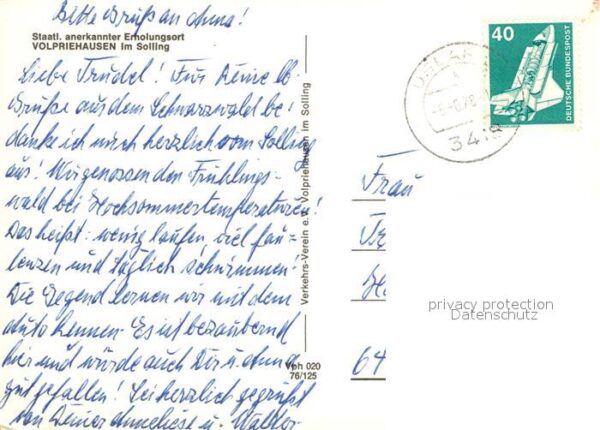 Bitte Gruß an Anna!
Staatl. anerkannter Erholungsort
VOLPRIEHAUSEN im Solling
Liebe Trudel! Für Deine lb.
Grüße aus dem Schwarzwald be-
danke ich mich herzlich vom Solling
aus! Wir genossen den Frühlings-
wald bei Hochsommertemperaturen!
Das heißt: wenig laufen, viel fau-
lenzen und täglich schwimmen!
Die Gegend lernen wir mit dem
Auto kennen. Es ist bezaubernd
hier und würde auch Dir u. Anna
gut gefallen! Sei herzlich gegrüßt
von Deiner Anneliese u. Walter
Verkehrs-Verein e.V. Volpriehausen im Solling
Vph 020
76/125
40
DEUTSCHE BUNDESPOST
USLAR
3418
Frau
64
privacy protection
Datenschutz